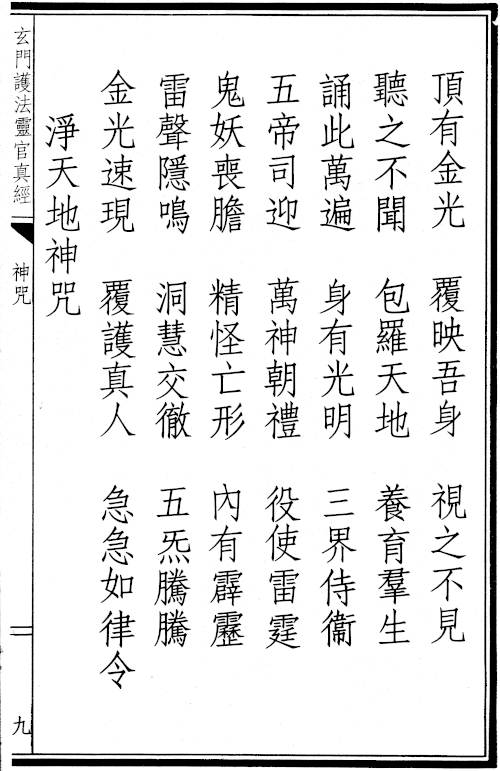 頂有金光　覆映吾身　視之不見
聽之不聞　包羅天地　養育羣生
誦此萬遍　身有光明　三界侍衞
五帝司迎　萬神朝禮　役使雷霆
鬼妖喪膽　精怪亡形　內有霹靂
雷聲隱鳴　洞慧交徹　五炁騰騰
金光速現　覆護真人　急急如律令
淨天地神咒
玄門護法靈官真經　神咒　九